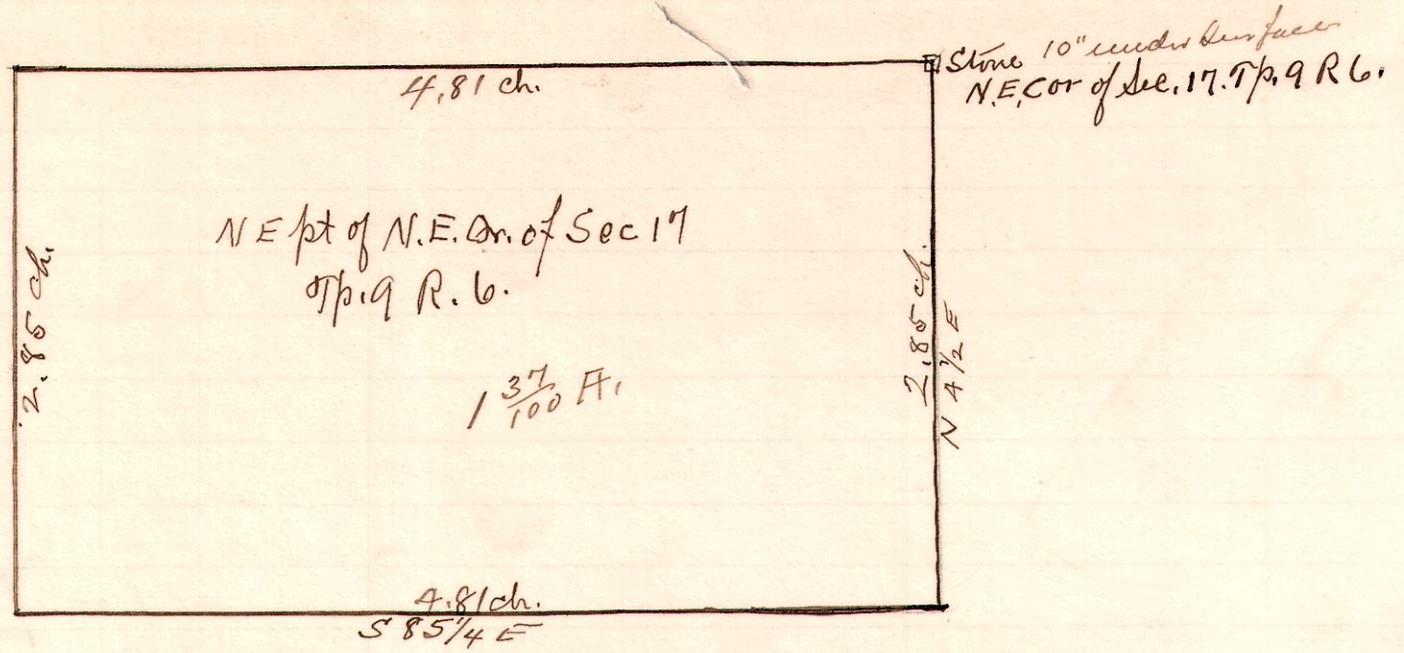 Stone 10" under Surface
N.E. Cor of Sec. 17. Tp. 9 R 6.
4.81 ch.
N E pt of N.E. Qr. of Sec 17
Tp. 9 R. 6.
1 37/100 A.
2.85 ch.
2.85 ch.
N 4 1/2 E
4.81 ch.
S 85 1/4 E